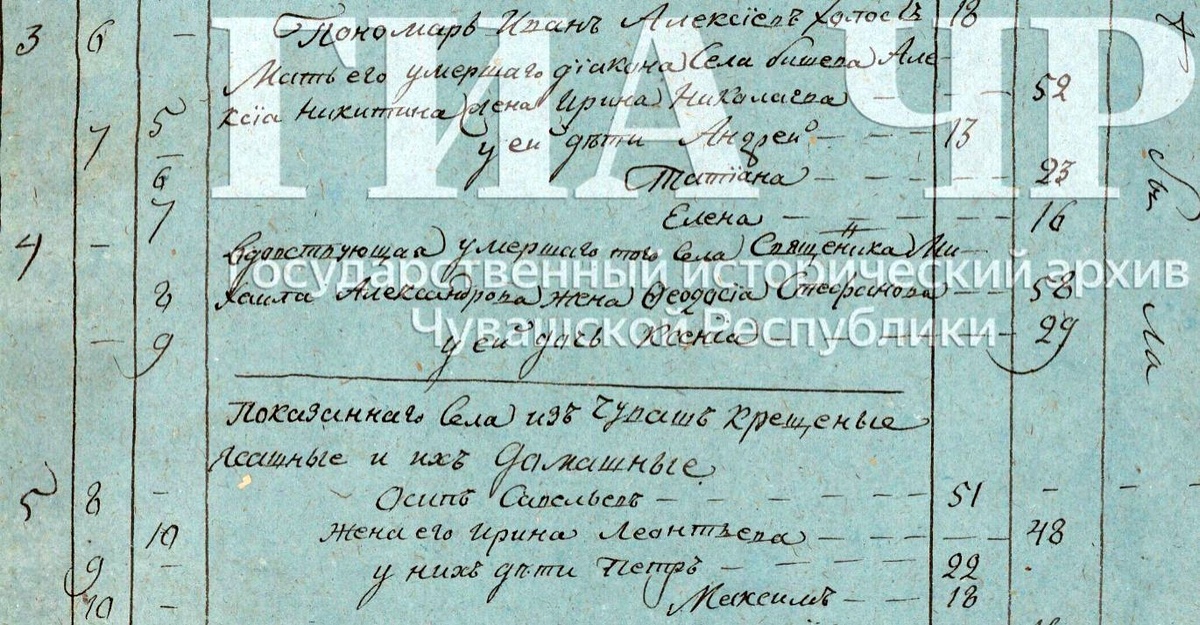 3 6 – Пономарь Иванъ Алексѣевъ холостъ 18
Мать его умершаго діакона Села бишева Але-
ксіа Никитина жена Ирина Николаева – – – 52
7 5 у еи дѣти Андреи – – – 13
6 Татіана – – – 23
7 Елена – – – 16
4 – вдовствующаа умершаго того села Священика Ми-
8 хаила Александрова жена Ѳеодосіа Стефанова – – 58
– 9 у еи дочь Ксеніа – – – 29
Показаннаго Села изъ Чувашъ крещеные
Ясашные и ихъ Домашные
5 8 – Осипъ Савельевъ – – – 51 – – –
10 Жена его Ирина Леонтьева – – – 48
9 – у нихъ дѣти Петръ – – – 22
10 – Максимъ – – – 18
были
ГИА ЧР
Государственный исторический архив
Чувашской Республики